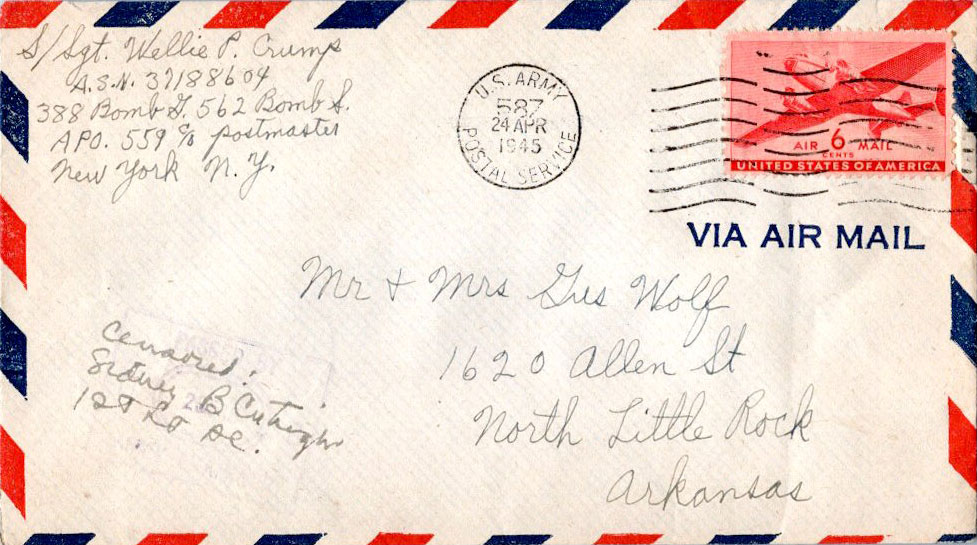 S/Sgt. Wellie P. Crump
A.S.N. 37188604
388 Bomb G. 562 Bomb S.
APO. 559 c/o postmaster
New York N.Y.
U.S. ARMY
587
24 APR
1945
POSTAL SERVICE
AIR 6 MAIL
CENTS
UNITED STATES OF AMERICA
VIA AIR MAIL
Mr + Mrs Gus Wolf
1620 Allen St
North Little Rock
Arkansas
Censored:
Sidney B
1st Lt